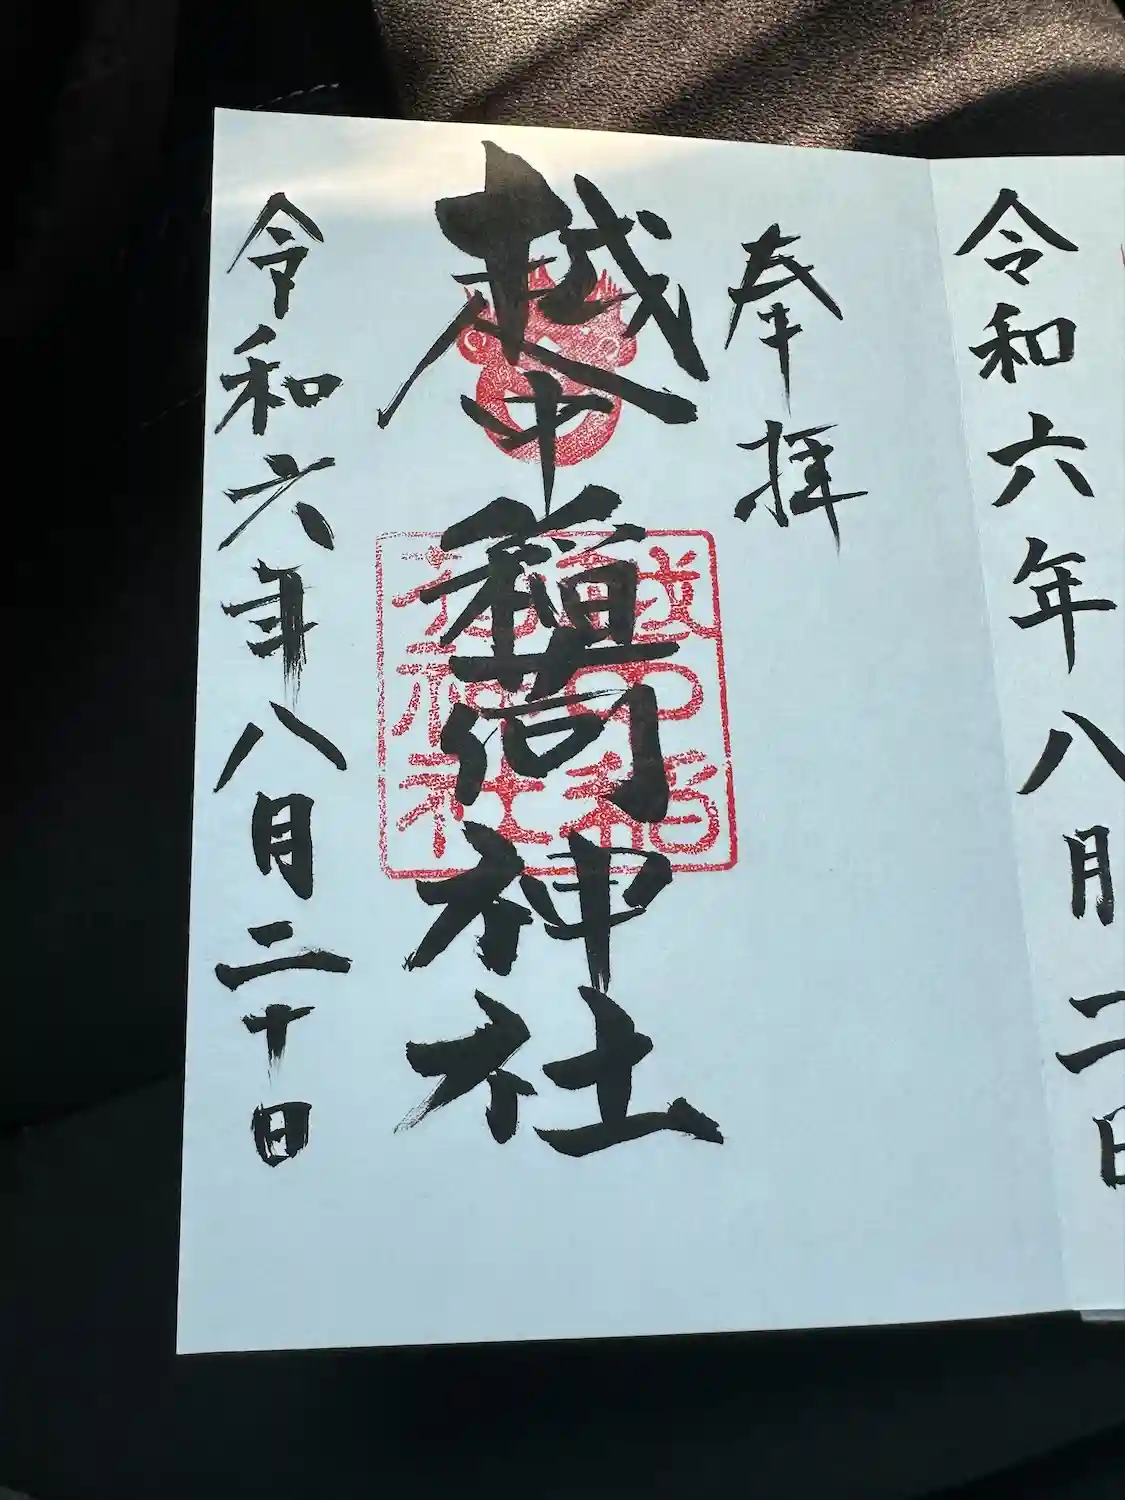 令和六年八月二日
奉拝
越中稲荷神社
越中稲荷神社
令和六年八月二十日